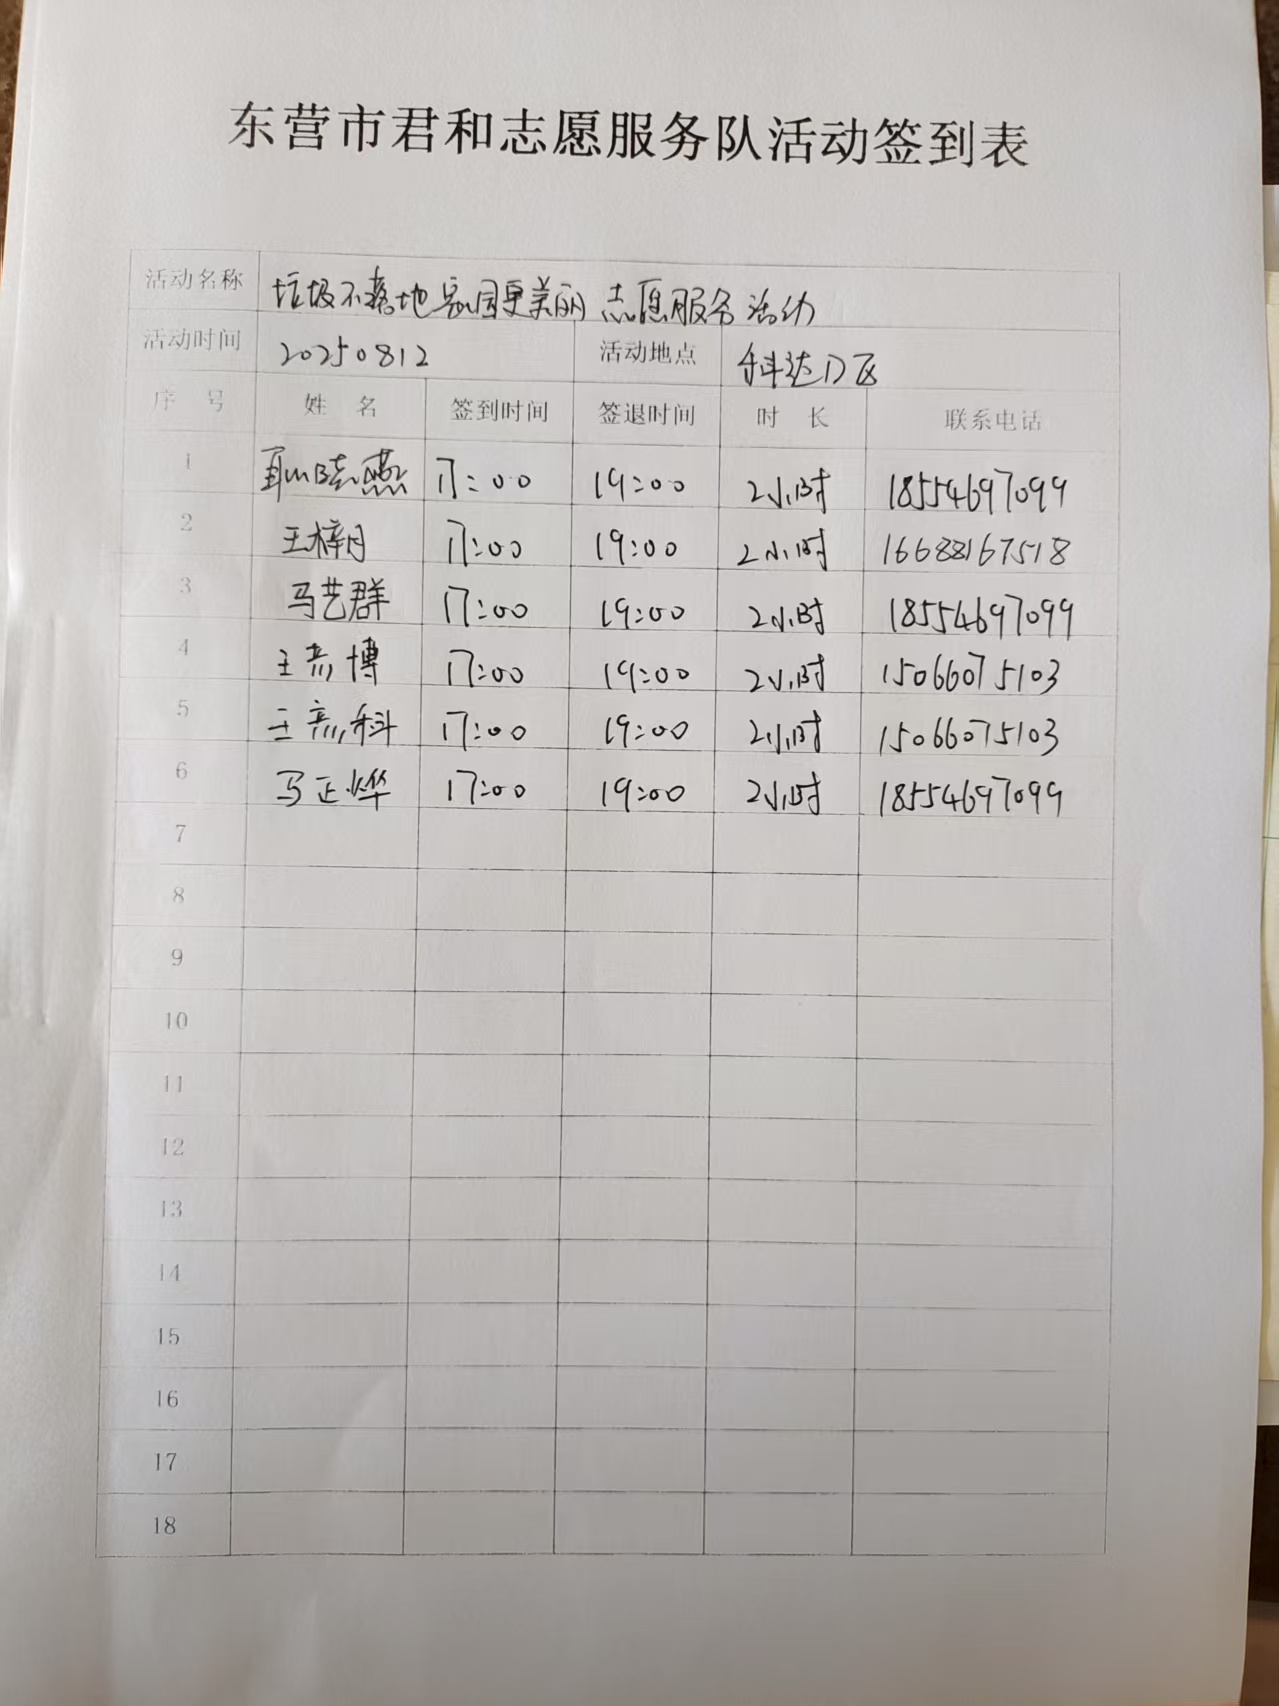 东营市君和志愿服务队活动签到表
活动名称 垃圾不落地 家园更美丽 志愿服务活动
活动时间 20250812 活动地点 科达D区
序 号 姓 名 签到时间 签退时间 时 长 联系电话
1 耿晓燕 17:00 19:00 2小时 18554697099
2 王梓月 17:00 19:00 2小时 16688167518
3 马艺群 17:00 19:00 2小时 18554697099
4 王彦博 17:00 19:00 2小时 15066075103
5 王彦科 17:00 19:00 2小时 15066075103
6 马正烨 17:00 19:00 2小时 18554697099
7
8
9
10
11
12
13
14
15
16
17
18